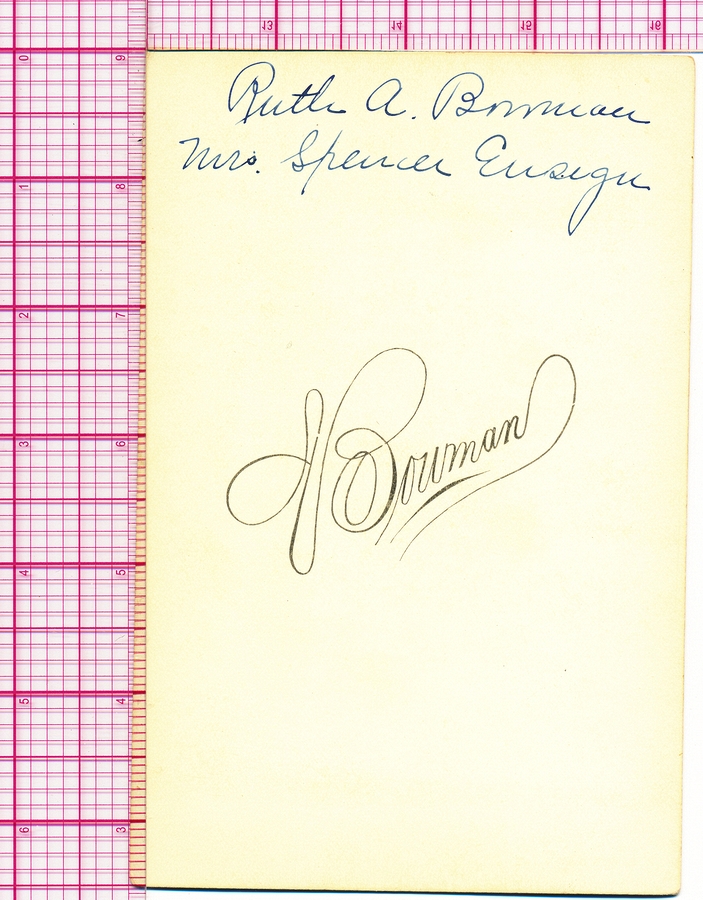 13 14 15 16
Ruth A. Bowman
Mrs. Spencer Ensign
Bowman
0 9
1 8
2 7
3 6
4 5
5 4
6 3